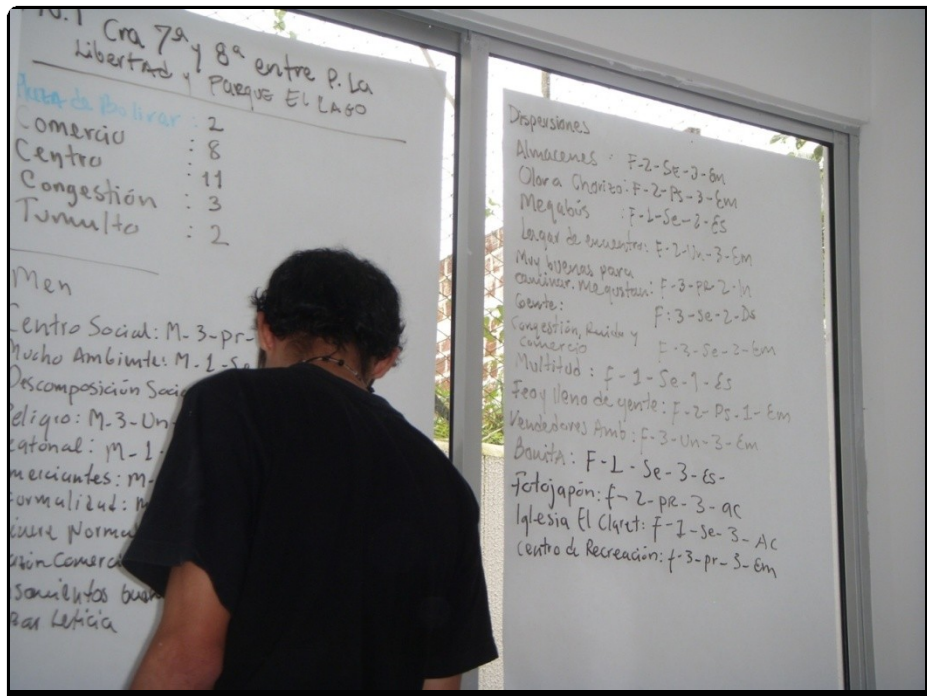 N.1 Cra 7ª y 8ª entre P. La
Libertad y Parque El LAGO
Plaza de Bolivar : 2
Comercio : 8
Centro : 11
Congestión : 3
Tumulto : 2
Men
Centro Social: M-3-pr-
Mucho Ambiente: M-1-Se
Descomposición Socia
Peligro: M-3-Un-
eatonal: M-1
merciantes: M-
formalidad: M
Norma
Comerc
samientos buen
Leticia
Dispersiones
Almacenes : F-2-Se-3-Em
Olor a Chorizo: F-2-Ps-3-Em
Megabús : F-1-Se-2-Es
Lugar de encuentro: F-2-Un-3-Em
Muy buenas para
caminar. Me gustan: F-3-pr-2-In
Gente: F:3-Se-2-Ds
Congestión, Ruido y
comercio F-3-Se-2-Em
Multitud : F-1-Se-1-Es
Feo y lleno de gente: F-2-Ps-1-Em
Vendedores Amb: F-3-Un-3-Em
Bonita: F-1-Se-3-Es-
Fotojapón: f-2-pr-3-ac
Iglesia El Claret: F-1-Se-3-AC
Centro de Recreación: f-3-pr-3-Em